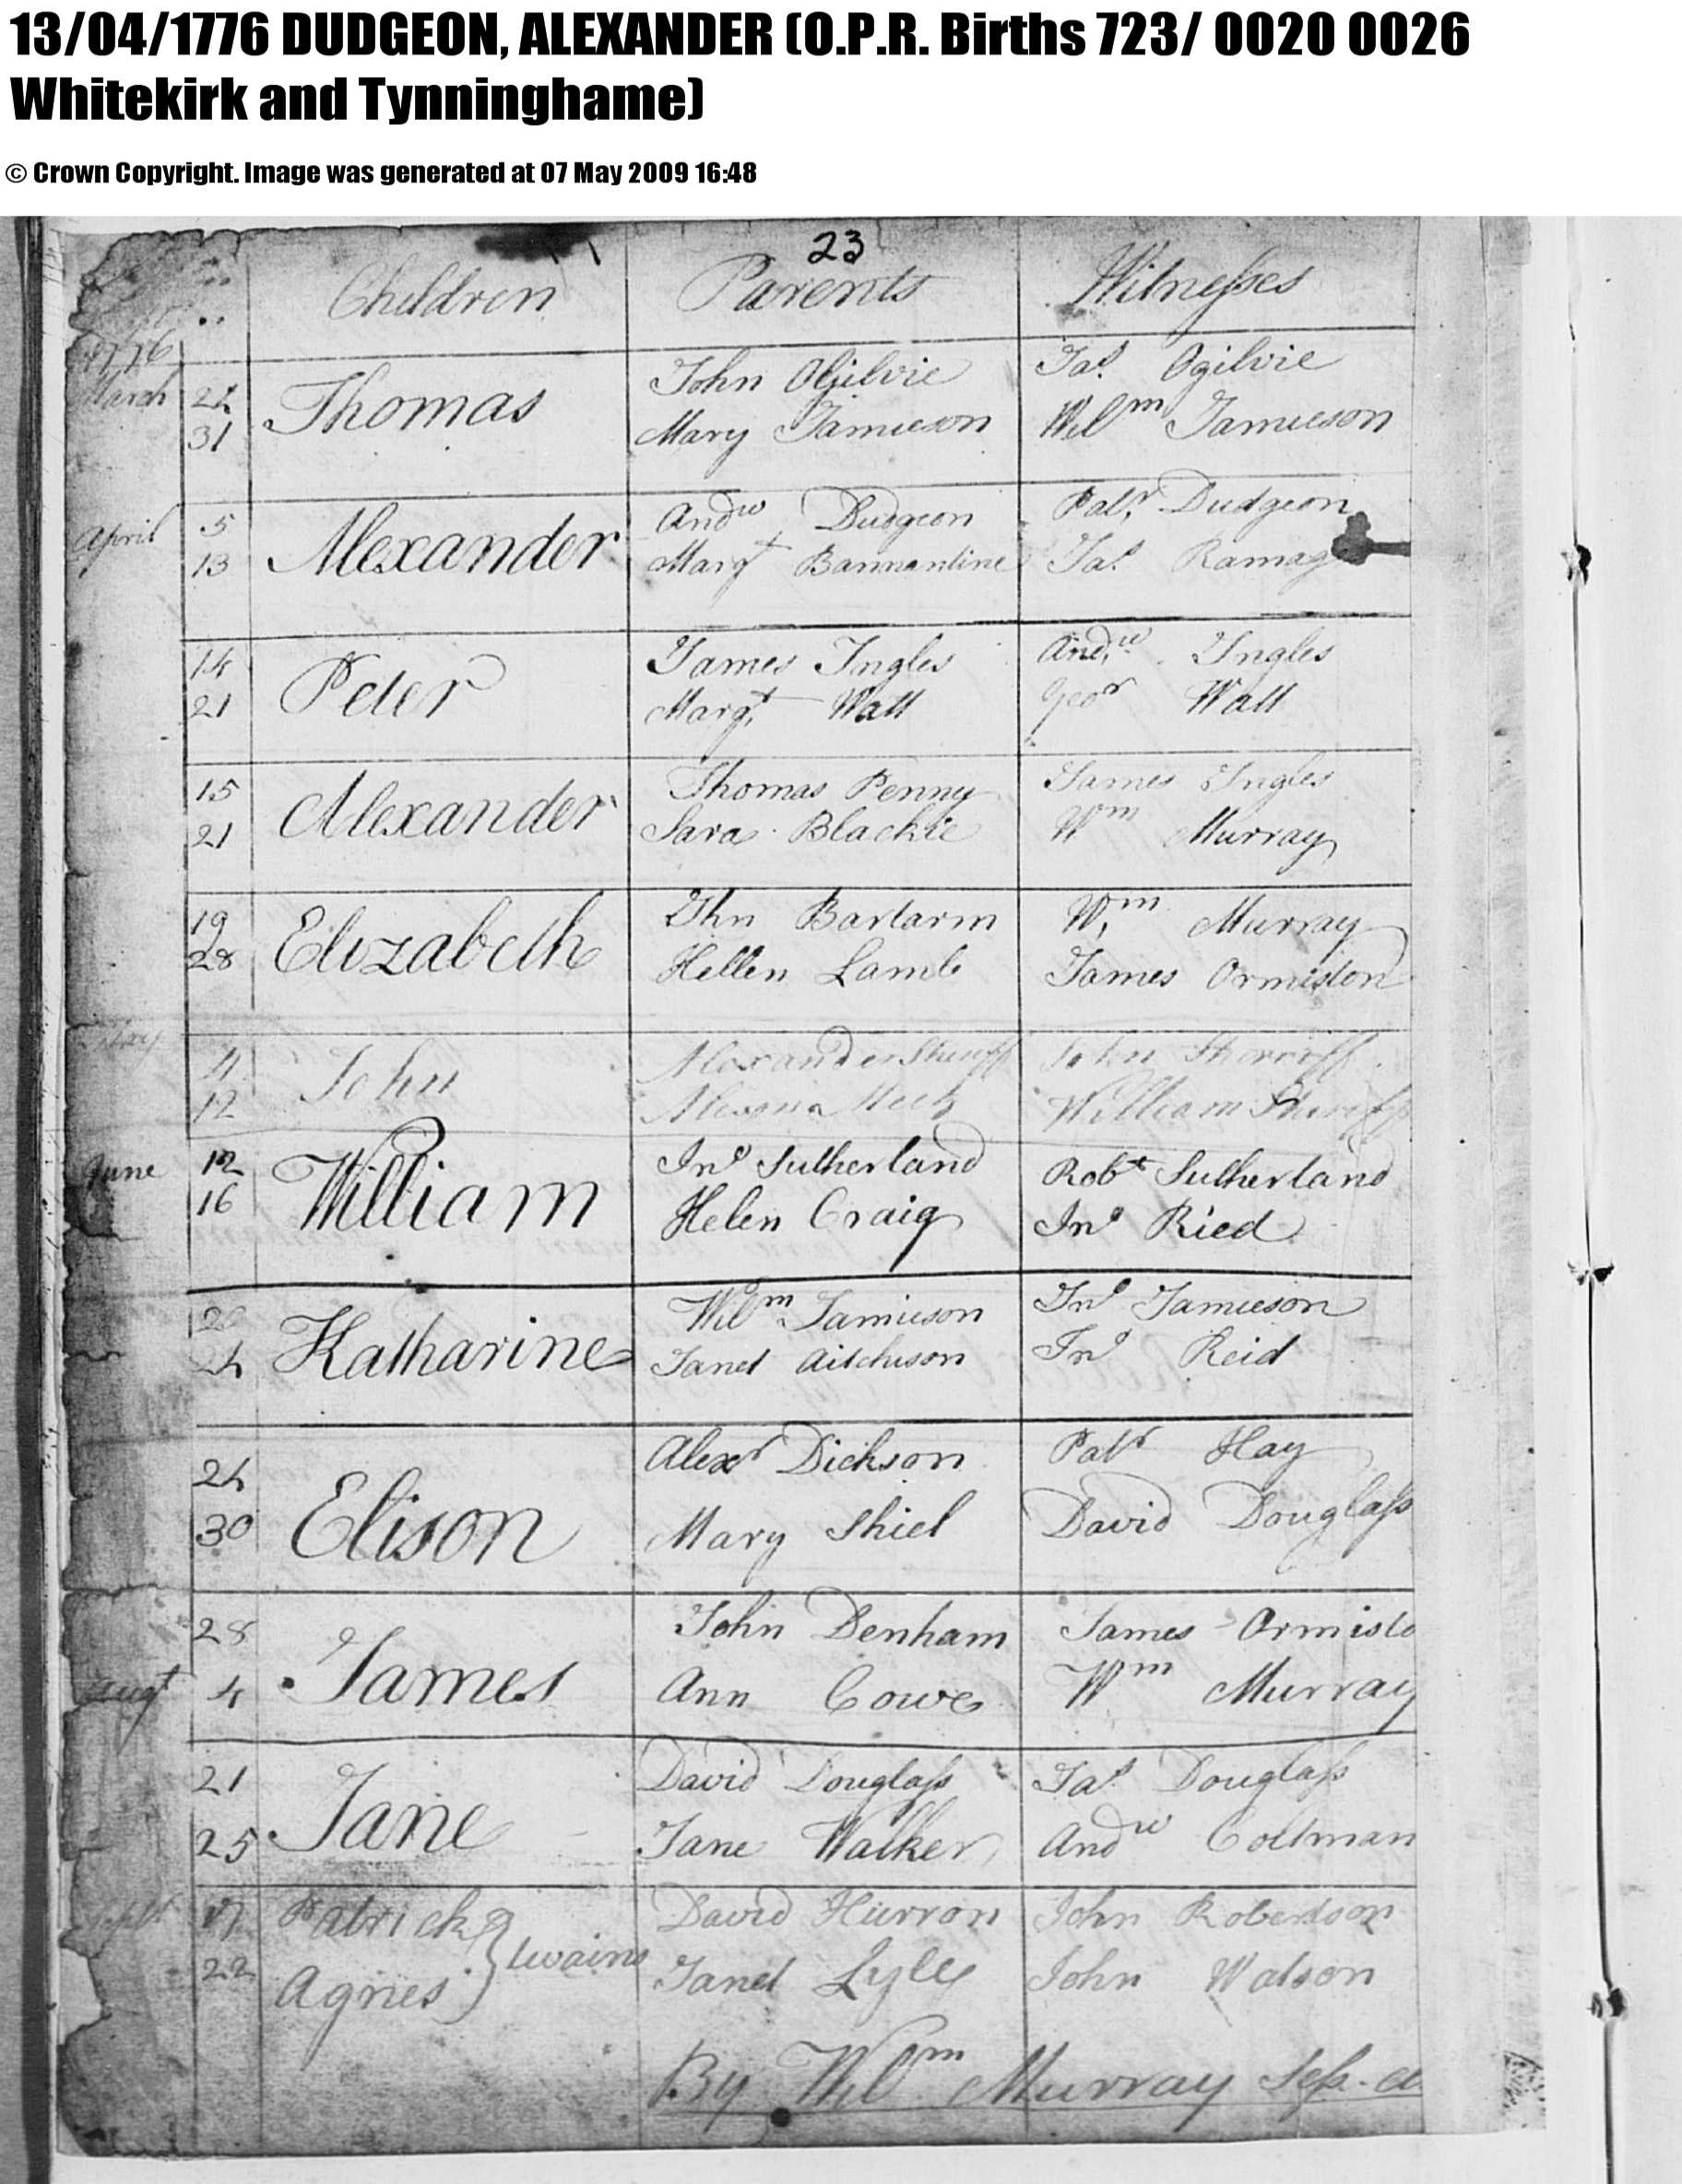 13/04/1776 DUDGEON, ALEXANDER (O.P.R. Births 723/ 0020 0026
Whitekirk and Tynninghame)
© Crown Copyright. Image was generated at 07 May 2009 16:48
23
Children Parents Witnesses
1776
March 24 Thomas John Ogilvie Jas. Ogilvie
31 Mary Jamieson Wilm Jamieson
April 5 Alexander Andw Dudgeon Patr. Dudgeon
13 Margt Bannantine Jas. Ramag
14 Peter James Ingles Andw. Ingles
21 Margt. Watt Geor Watt
15 Alexander Thomas Penny James Ingles
21 Sara Blackie Wm Murray
19 Elizabeth Jhn Bartarm Wm. Murray
28 Hellen Lamb James Ormiston
May 4 John Alexander Sheriff John Sherriff
12 Meek William Sheriff
June 12 William Jno Sutherland Robt Sutherland
16 Helen Craig Jno Ried
20 Katharine Wilm Jamieson Jno Jamieson
24 Janet Aitchison Jno Reid
24 Elison Alexr Dickson Patr Hay
30 Mary Shiel David Douglass
28 James John Denham James Ormisto
Augt 4 Ann Cowe Wm Murray
21 Jane David Douglass Jas. Douglass
25 Jane Walker Andw Coltman
Sept 17 Patrick } twains David Hurron John Robertson
22 Agnes Janet Lyle John Watson
By Wilm Murray Sess. cl